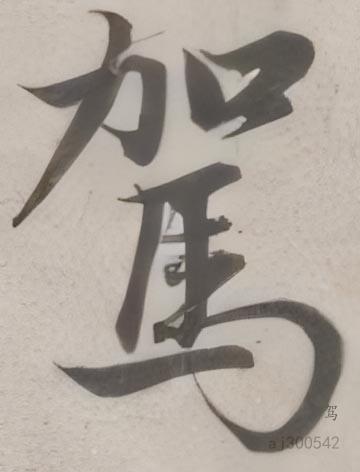 駕
駕
aj300542